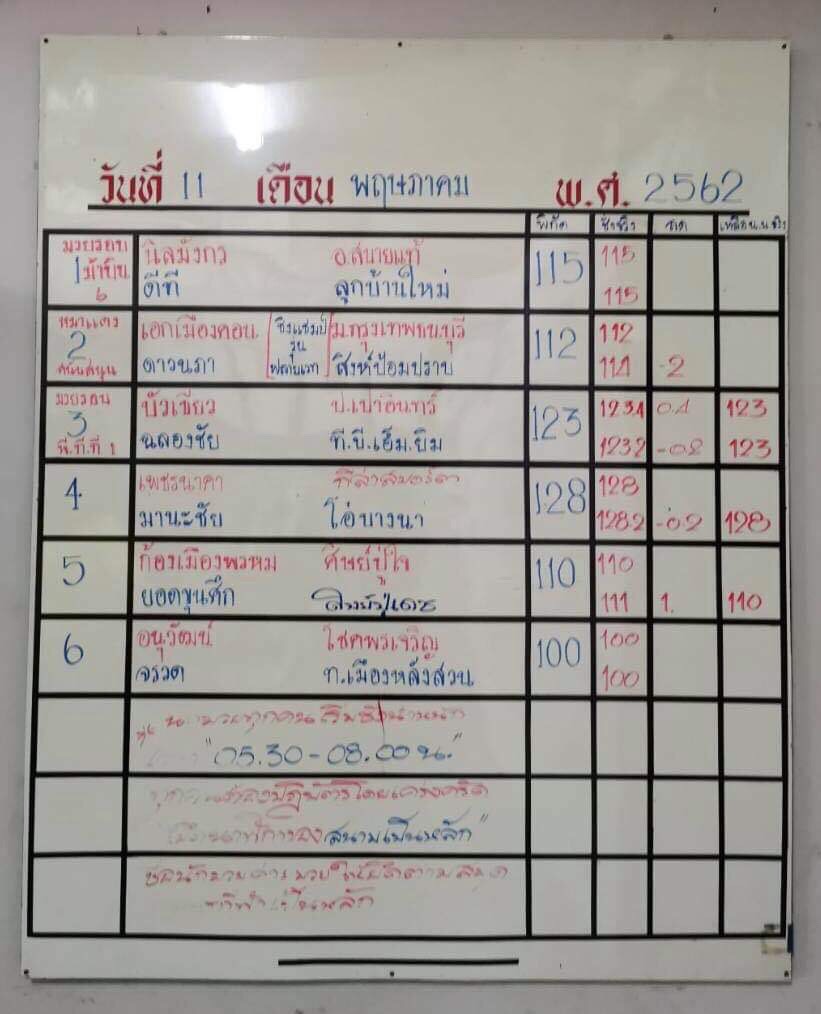 วันที่ 11 เดือน พฤษภาคม พ.ศ. 2562
พิกัด ชั่งจริง ขาด เหลือน.น.จริง
มวยรอบ นิลมังกร อ.สนายแท้ 115 115
1 ม้าบิน ดีที ลูกบ้านใหม่ 115
6
หมาแดง เอกเมืองคอน ชิงแชมป์ ม.กรุงเทพธนบุรี 112 112
2 รุ่น
ดาวนภา สิงห์ป้อมปราบ 114 -2
มวยรอบ บัวเขียว ป.เปาอินทร์ 123 123.1 0.1 123
3
พี.ที.ที 1 ฉลองชัย ที.บี.เอ็ม.ยิม 123.2 -0.2 123
4 เพชรนาคา 128 128
มานะชัย โอ๋บางนา 128.2 -0.2 128
5 ก้องเมืองพรหม ศิษย์ปู่ใจ 110 110
ยอดขุนศึก 111 1. 110
6 อนุวัฒน์ โชคพรเจริญ 100 100
จรวด ท.เมืองหลังสวน 100
มวยทุกคนเริ่มชั่งน้ำหนัก
"05.30-08.00 น."
ปฏิบัติโดยเคร่งครัด
สนามเป็นหลัก"
ชื่อนักมวย
เป็นหลัก